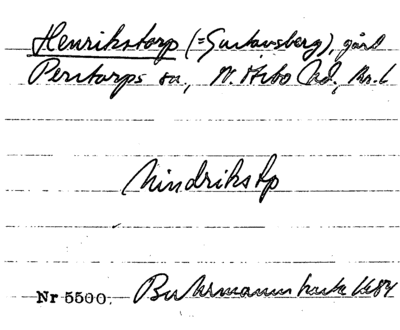 Henrikstorp (=Gustavsberg), gård
Perstorps sn, N. Åsbo hd, Kr. l
Hindrikstp
Nr 5500. Buhrmanns karta 1684